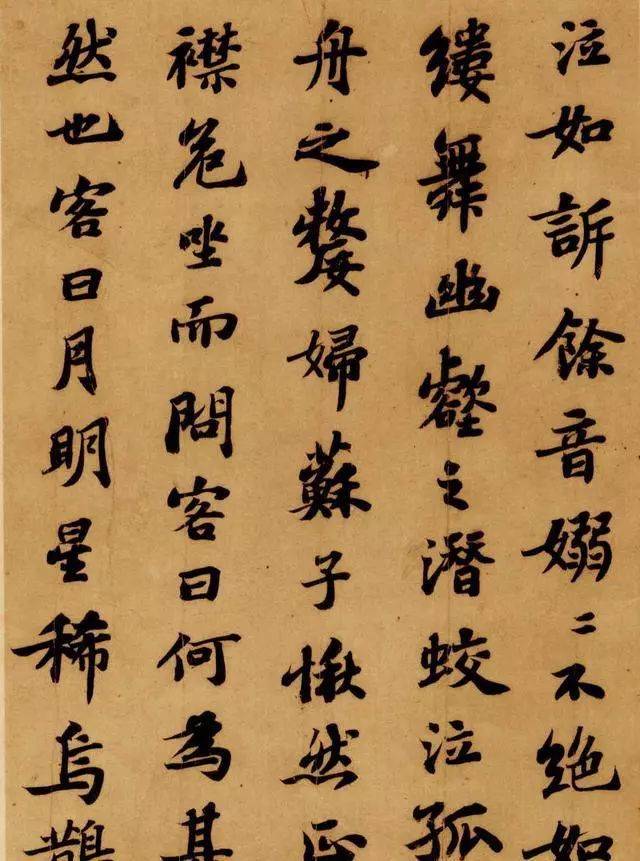 泣如訴餘音嫋〻不絕如
縷舞幽壑之潛蛟泣孤
舟之嫠婦蘇子愀然正
襟危坐而問客曰何為其
然也客曰月明星稀烏鵲